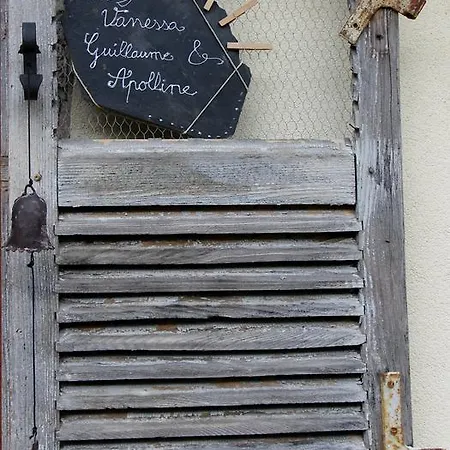 Vanessa
Guillaume &
Apolline